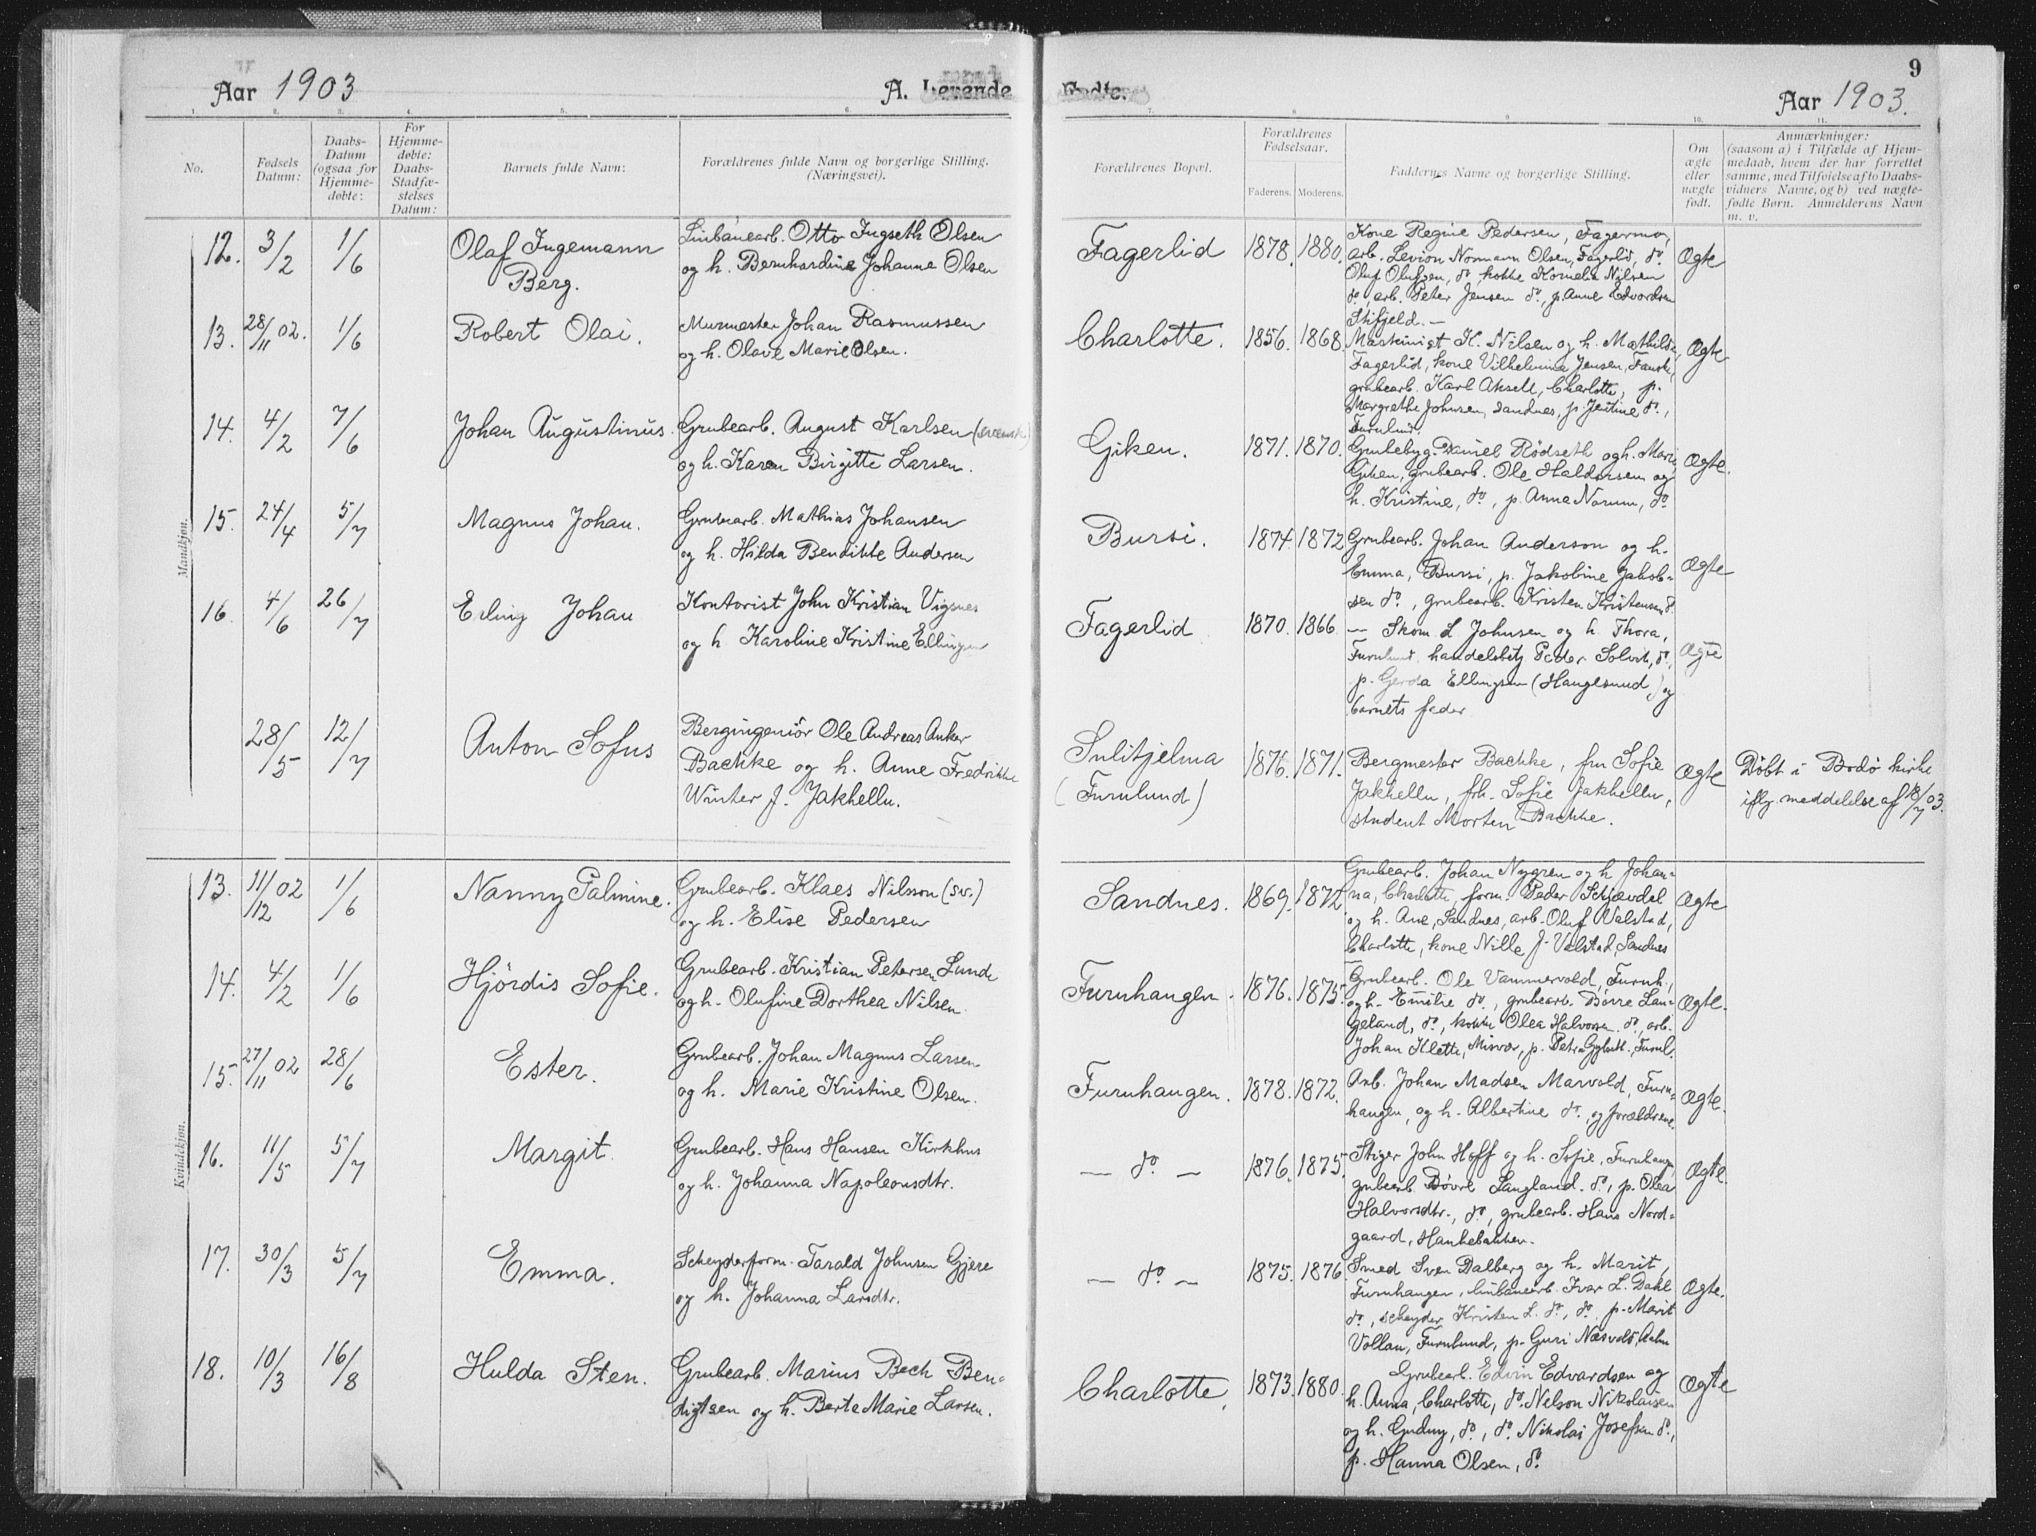 Aar 1903
A. Levende
1. 2. 3. 4. 5. 6.
No.
Fødsels Datum:
Daabs-Datum (ogsaa for Hjemmedøbte:
For Hjemmedøbte: Daabs-Stadfæstelses Datum:
Barnets fulde Navn:
Forældrenes fulde Navn og borgerlige Stilling. (Næringsvei).
Mandkjøn.
12. 3/2 1/6 Olaf Ingemann
Berg.
Linbanearb. Otto Ingseth Olsen
og h. Bernhardine Johanne Olsen
13. 28/11 02. 1/6 Robert Olai.
Murmester Johan Rasmussen
og h. Olave Marie Olsen.
14. 4/2 7/6 Johan Augustinus.
Grubearb. August Karlsen (svensk)
og h. Karen Birgitte Larsen.
15. 24/4 5/7 Magnus Johan.
Grubearb. Mathias Johansen
og h. Hilda Bendikke Andersen
16. 4/6 26/7 Erling Johan
Kontorist John Kristian Vigsnes
og h Karoline Kristine Ellingsen
28/5 12/7 Anton Sofus
Bergingeniör Ole Andreas Anker
Bachke og h. Anne Fredrikke
Winter f. Jakhelln.
Kvindekjøn.
13. 11/12 02 1/6 Nanny Palmine.
Grubearb. Klaes Nilsson (sv.)
og h. Elise Pedersen
14. 4/2 1/6 Hjördis Sofie.
Grubearb. Kristian Petersen Lunde
og h. Olufine Dorthea Nilsen
15. 27/11 02 28/6 Ester.
Grubearb. Johan Magnus Larsen
og h. Marie Kristine Olsen.
16. 11/5 5/7 Margit
Grubearb. Hans Hansen Kirkhus
og h. Johanna Napoleonsdtr.
17. 30/3 5/7 Emma.
Scheyderform. Tarald Johnsen Gjere
og h. Johanna Larsdtr.
18. 10/3 16/8 Hulda Sten.
Grubearb. Marius Bech Ben-
digtsen og h. Berte Marie Larsen.
9
Fødte.
Aar 1903.
7. 8. 9. 10. 11.
Forældrenes Bopæl.
Forældrenes Fødselsaar.
Faderens. Moderens.
Faddernes Navne og borgerlige Stilling.
Om ægte eller uægte født.
Anmærkninger:
(saasom a) i Tilfælde af Hjem-
medaab, hvem der har forrettet
samme, med Tilføielse af to Daabs-
vidners Navne, og b) ved uægte-
fødte Børn. Anmelderens Navn
m. v.
Fagerlid 1878. 1880.
Kone Regine Pedersen, Fagermo,
arb. Levion Normann Olsen, Fagerlid, do.
Oluf Olufsen, do, kokke Kornelia Nilsen
do, arb. Peter Jensen do, p. Anne Edvardsen
Stifjeld. —
Ægte
Charlotte. 1856. 1868.
Maskinist K. Nilsen og h. Mathilde
Fagerlid, kone Vilhelmine Jensen, Fauske,
grubearb. Karl Aksell, Charlotte, p.
Margrethe Johnsen, Sandnes, p. Jentine do.,
Furulund.
Ægte
Giken. 1871. 1870.
Daniel Rödseth og h. Marie
Giken, grubearb. Ole Haldorsen og
h. Kristine, do, p. Anna Norum, do
Ægte.
Bursi. 1874. 1872
Grubearb. Johan Anderson og h.
Emma, Bursi, p. Jakobine Jakob-
sen do., grubearb. Kristen Kristensen do
Ægte
Fagerlid 1870. 1866.
— Skom. L Johnsen og h. Thora,
Furulund, handelsbetj Peder Solvik, do,
p. Gerda Ellingsen (Haugesund) og
barnets fader
Ægte
Sulitjelma
(Furulund)
1876. 1871.
Bergmester Bachke, fru Sofie
Jakhelln, frk. Sofie Jakhelln,
student Morten Bachke.
Ægte
Döbt i Bodö kirke
iflg. meddelelse af 18/7 03.
Sandnes. 1869. 1872
Grubearb. Johan Nygren og h Johan-
na, Charlotte, form. Peder Schjævdal
og h. Ane, Sandnes, arb. Oluf Valstad,
Charlotte, kone Nille J. Valstad, Sandnes
Ægte
Furuhaugen. 1876. 1875.
Grubearb. Ole Vammervold, Furuh.,
og h. Emilie do., grubearb. Börre Lan-
geland, do., kokke Olea Halvorsen do., arb.
Johan Klette, Misvær, p. Petra Furul.
Ægte.
Furuhaugen. 1878. 1872.
Arb. Johan Madsen Marvold, Furu-
haugen, og h. Albertine do., og forældrene.
Ægte.
— do — 1876. 1875.
Stiger John Hoff og h. Sofie, Furuhaugen,
grubearb. Bövre Langland. do, p. Olea
Halvorsdtr., do, grubearb. Hans Nord-
gaard, Hankebakken.
Ægte.
— do — 1875. 1876
Smed Sven Dalberg og h. Marit,
Furuhaugen, linbanearb. Ivar L. Dahl
do., scheyder Kristen L. do, do, p. Marit
Vollan, Furulund, p. Guri Næsvold,
Ægte.
Charlotte. 1873. 1880.
Grubearb. Edvin Edvardsen og
h. Anna, Charlotte, do. Nelson Nikolaisen
og h. Gudny, do., do. Nikolai Josefsen do.,
p. Hanna Olsen, do.
Ægte